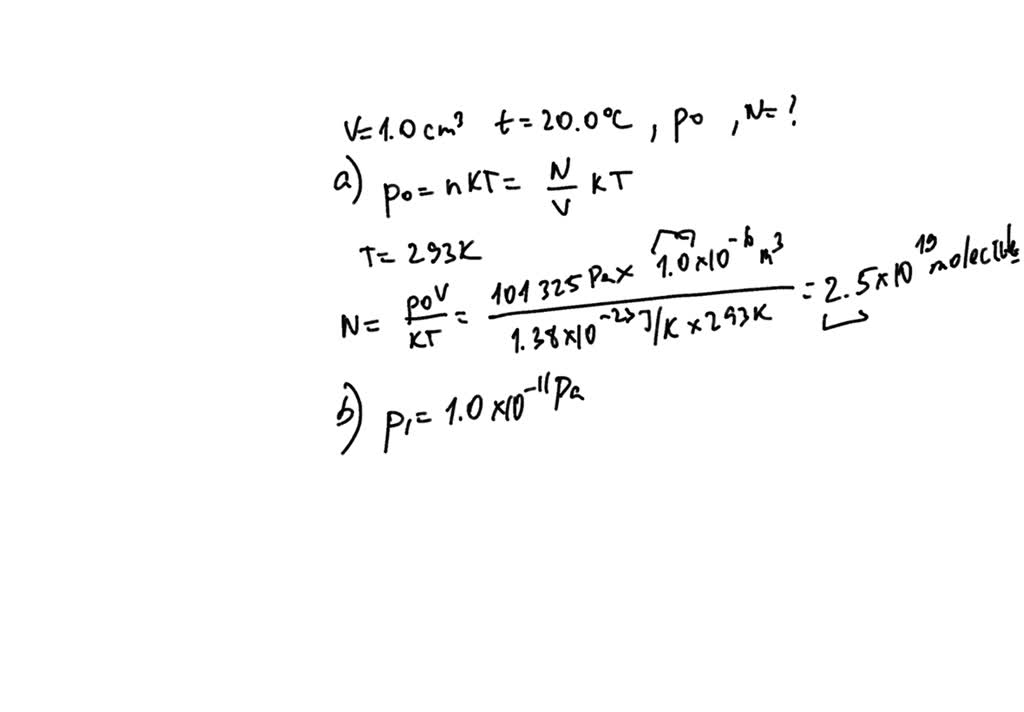 V=1.0cm³ t=20.0°C, p₀, N=?
a) p₀=nKT= N/V KT
T=293K
N= p₀V/KT = 101325Pa× 1.0×10⁻⁶m³ / 1.38×10⁻²³J/K×293K = 2.5×10¹⁹ molecule
b) p₁=1.0×10⁻¹¹Pa